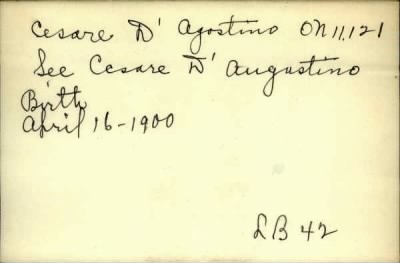 Cesare D' Agostino ON 11,121
See Cesare D' Augustino
Birth
April 16-1900
LB 42